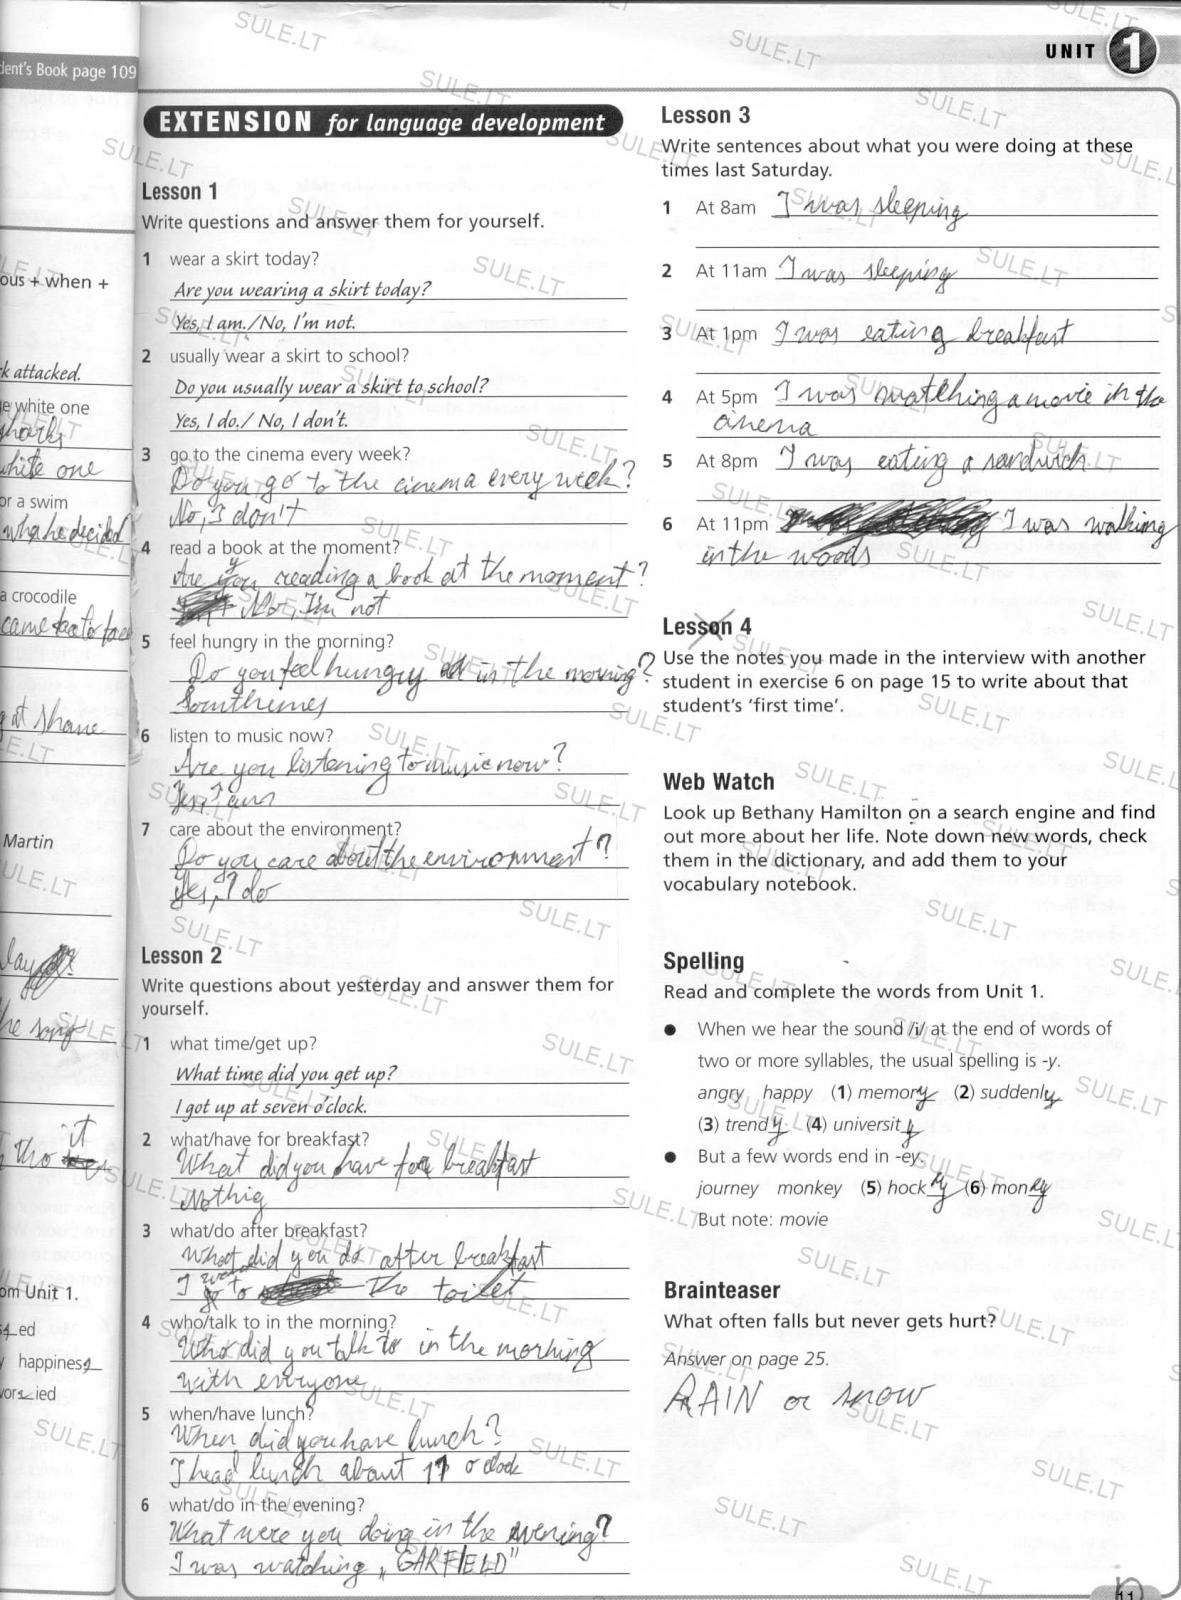 dent's Book page 109
UNIT 1
EXTENSION for language development
Lesson 1
Write questions and answer them for yourself.
1 wear a skirt today?
Are you wearing a skirt today?
Yes, I am./No, I'm not.
2 usually wear a skirt to school?
Do you usually wear a skirt to school?
Yes, I do./ No, I don't.
3 go to the cinema every week?
Do you go to the cinema every week?
No, I don't
4 read a book at the moment?
Are you reading a book at the moment?
No, I'm not
5 feel hungry in the morning?
Do you feel hungry in the morning?
Somthemes
6 listen to music now?
Are you listening to music now?
Yes, I am
7 care about the environment?
Do you care about the environment?
Yes, I do
Lesson 2
Write questions about yesterday and answer them for
yourself.
1 what time/get up?
What time did you get up?
I got up at seven o'clock.
2 what/have for breakfast?
What did you have for breakfast
Nothig
3 what/do after breakfast?
What did you do after breakfast
I went to the toilet
4 who/talk to in the morning?
Who did you talk to in the morning
with everyone
5 when/have lunch?
When did you have lunch?
I head lunch about 11 o'clock
6 what/do in the evening?
What were you doing in the evening?
I was watching „GARFIELD"
Lesson 3
Write sentences about what you were doing at these
times last Saturday.
1 At 8am I was sleeping
2 At 11am I was sleeping
3 At 1pm I was eating breakfast
4 At 5pm I was watching a movie in the
cinema
5 At 8pm I was eating a sandwich
6 At 11pm I was walking
in the woods
Lesson 4
Use the notes you made in the interview with another
student in exercise 6 on page 15 to write about that
student's 'first time'.
Web Watch
Look up Bethany Hamilton on a search engine and find
out more about her life. Note down new words, check
them in the dictionary, and add them to your
vocabulary notebook.
Spelling
Read and complete the words from Unit 1.
● When we hear the sound /i/ at the end of words of
two or more syllables, the usual spelling is -y.
angry happy (1) memory (2) suddenly
(3) trendy (4) university
● But a few words end in -ey.
journey monkey (5) hockey (6) money
But note: movie
Brainteaser
What often falls but never gets hurt?
Answer on page 25.
RAIN or snow
11
ous + when +
k attacked.
e white one
sharks
white one
or a swim
when he decided
a crocodile
came face to face
at shane
Martin
the song
it
om Unit 1.
happiness
SULE.LT